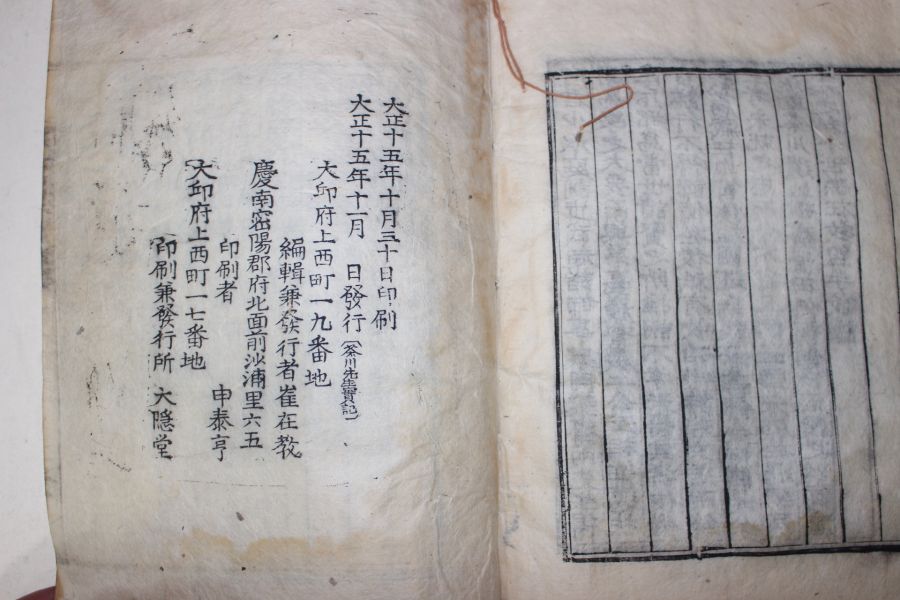 大正十五年十月三十日印刷
大正十五年十一月　日發行（ 川先生實記）
大邱府上西町一九番地
編輯兼發行者崔在敎
慶南密陽郡府北面前沙浦里六五
印刷者　申泰亨
大邱府上西町一七番地
印刷兼發行所　大隱堂